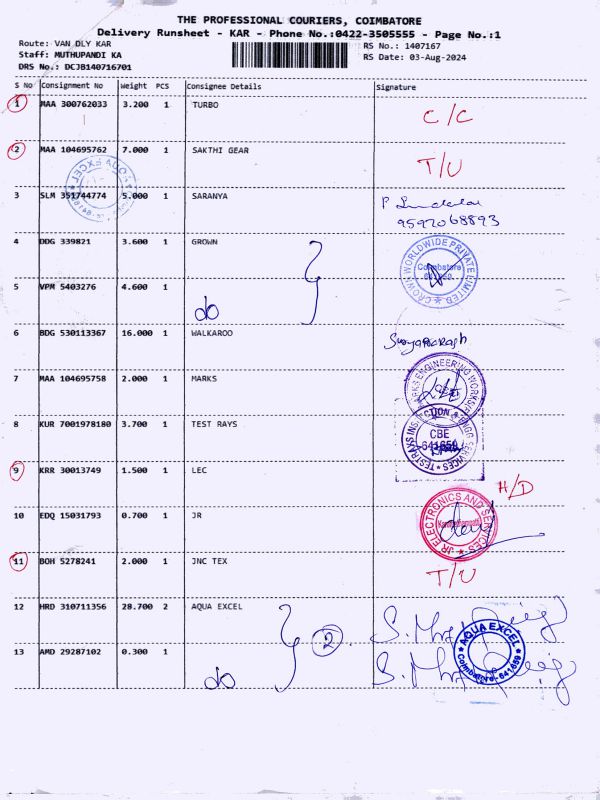 THE PROFESSIONAL COURIERS, COIMBATORE
Delivery Runsheet - KAR - Phone No.:0422-3505555 - Page No.:1
Route: VAN DLY KAR
Staff: MUTHUPANDI KA
DRS No.: DCJB140716701
RS No.: 1407167
RS Date: 03-Aug-2024
S No Consignment No Weight PCS Consignee Details Signature
1 MAA 300762033 3.200 1 TURBO C/C
2 MAA 104695762 7.000 1 SAKTHI GEAR T/U
AQUA EXCEL
3 SLM 351744774 5.000 1 SARANYA
9597068893
4 DDG 339821 3.600 1 GROWN
CROWN WORLDWIDE PRIVATE LIMITED
Coimbatore
5 VPM 5403276 4.600 1 do
6 BDG 530113367 16.000 1 WALKAROO Suryaprakash
7 MAA 104695758 2.000 1 MARKS
MARKS ENGINEERING WORKS
8 KUR 7001978180 3.700 1 TEST RAYS
CBE
641659
9 KRR 30013749 1.500 1 LEC H/D
10 EDQ 15031793 0.700 1 JR
JR ELECTRONICS AND SERVICES
11 BOH 5278241 2.000 1 JNC TEX T/U
12 HRD 310711356 28.700 2 AQUA EXCEL 2
AQUA EXCEL
Coimbatore - 641659
13 AMD 29287102 0.300 1 do